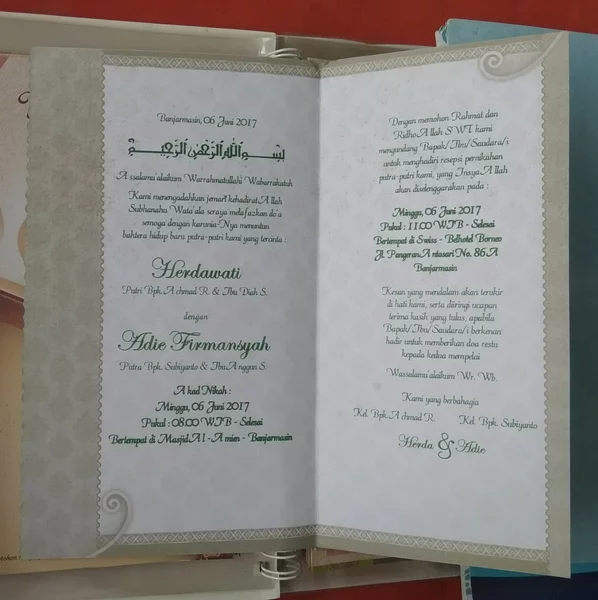 Banjarmasin, 06 Juni 2017
بِسْمِ اللهِ الرَّحْمٰنِ الرَّحِيْمِ
Assalamu'alaikum Warrahmatullahi Wabarrakatuh
Kami menengadahkan jemari kehadirat Allah
Subhanahu Wata'ala seraya melafazkan do'a
semoga dengan karunia-Nya menuntun
bahtera hidup baru putra-putri kami yang tercinta :
Herdawati
Putri Bpk. Achmad R. & Ibu Diah S.
dengan
Adie Firmansyah
Putra Bpk. Subiyanto & Ibu Anggun S.
Akad Nikah :
Minggu, 06 Juni 2017
Pukul : 08.00 WIB - Selesai
Bertempat di Masjid Al - Amien - Banjarmasin
Dengan memohon Rahmat dan
Ridho Allah SWT kami
mengundang Bapak/Ibu/Saudara/i
untuk menghadiri resepsi pernikahan
putra-putri kami, yang InsyaAllah
akan diselenggarakan pada :
Minggu, 06 Juni 2017
Pukul : 11.00 WIB - Selesai
Bertempat di Swiss - Belhotel Borneo
Jl. Pangeran Antasari No. 86A
Banjarmasin
Kesan yang mendalam akan terukir
di hati kami, serta diiringi ucapan
terima kasih yang tulus, apabila
Bapak/Ibu/Saudara/i berkenan
hadir untuk memberikan doa restu
kepada kedua mempelai
Wassalamu'alaikum Wr. Wb.
Kami yang berbahagia
Kel. Bpk. Achmad R. Kel. Bpk. Subiyanto
Herda & Adie